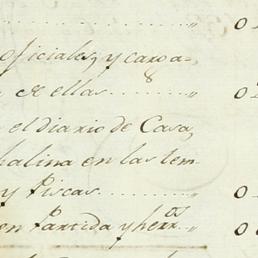 0
oficiales, y caroa,
a de ellas 0
el diario de Casa,
halina en las tem
y Piscas 0
en Partida y herr.os 0